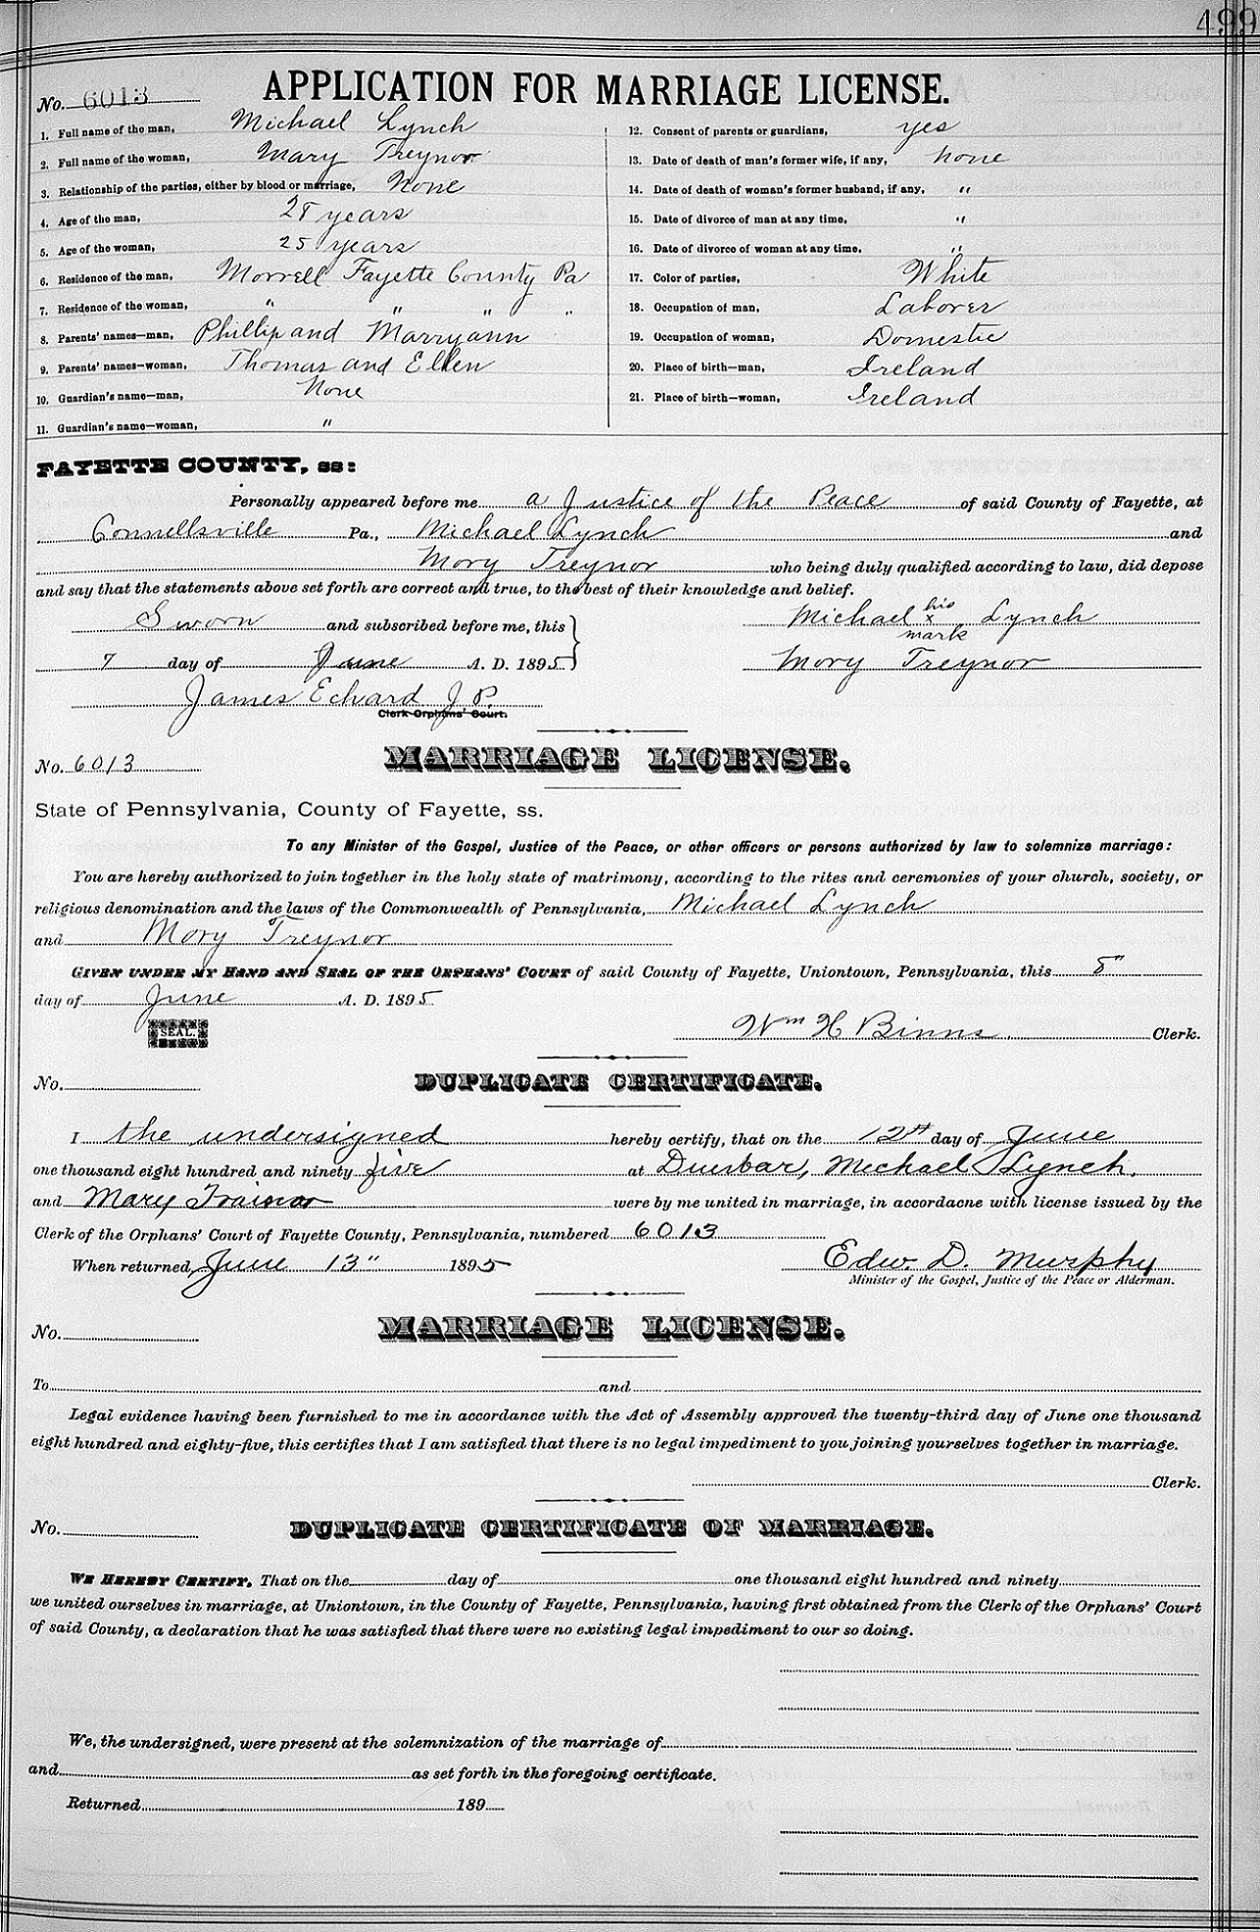 499
No. 6013 APPLICATION FOR MARRIAGE LICENSE.
1. Full name of the man, Michael Lynch
2. Full name of the woman, Mary Treynor
3. Relationship of the parties, either by blood or marriage, None
4. Age of the man, 28 years
5. Age of the woman, 25 years
6. Residence of the man, Morrell Fayette County Pa
7. Residence of the woman, " " "
8. Parents' names—man, Phillip and Marryann
9. Parents' names—woman, Thomas and Ellen
10. Guardian's name—man, None
11. Guardian's name—woman, "
12. Consent of parents or guardians, yes
13. Date of death of man's former wife, if any, none
14. Date of death of woman's former husband, if any, "
15. Date of divorce of man at any time, "
16. Date of divorce of woman at any time, "
17. Color of parties, White
18. Occupation of man, Laborer
19. Occupation of woman, Domestic
20. Place of birth—man, Ireland
21. Place of birth—woman, Ireland
FAYETTE COUNTY, ss:
Personally appeared before me a Justice of the Peace of said County of Fayette, at
Connellsville Pa., Michael Lynch and
Mory Treynor who being duly qualified according to law, did depose
and say that the statements above set forth are correct and true, to the best of their knowledge and belief.
Sworn and subscribed before me, this
7 day of June A. D. 1895
James Echard J P.
Clerk Orphans' Court.
Michael his x mark Lynch
Mory Treynor
No. 6013 MARRIAGE LICENSE.
State of Pennsylvania, County of Fayette, ss.
To any Minister of the Gospel, Justice of the Peace, or other officers or persons authorized by law to solemnize marriage:
You are hereby authorized to join together in the holy state of matrimony, according to the rites and ceremonies of your church, society, or
religious denomination and the laws of the Commonwealth of Pennsylvania, Michael Lynch
and Mory Treynor
GIVEN UNDER MY HAND AND SEAL OF THE ORPHANS' COURT of said County of Fayette, Uniontown, Pennsylvania, this 8"
day of June A. D. 1895
SEAL. Wm H Binns. Clerk.
No. DUPLICATE CERTIFICATE.
I the undersigned hereby certify, that on the 12th day of June
one thousand eight hundred and ninety five at Dunbar, Michael Lynch,
and Mary Trainor were by me united in marriage, in accordacne with license issued by the
Clerk of the Orphans' Court of Fayette County, Pennsylvania, numbered 6013
When returned, June 13" 1895 Edw. D. Murphy
Minister of the Gospel, Justice of the Peace or Alderman.
No. MARRIAGE LICENSE.
To and
Legal evidence having been furnished to me in accordance with the Act of Assembly approved the twenty-third day of June one thousand
eight hundred and eighty-five, this certifies that I am satisfied that there is no legal impediment to you joining yourselves together in marriage.
Clerk.
No. DUPLICATE CERTIFICATE OF MARRIAGE.
WE HEREBY CERTIFY, That on the day of one thousand eight hundred and ninety
we united ourselves in marriage, at Uniontown, in the County of Fayette, Pennsylvania, having first obtained from the Clerk of the Orphans' Court
of said County, a declaration that he was satisfied that there were no existing legal impediment to our so doing.
We, the undersigned, were present at the solemnization of the marriage of
and as set forth in the foregoing certificate.
Returned 189